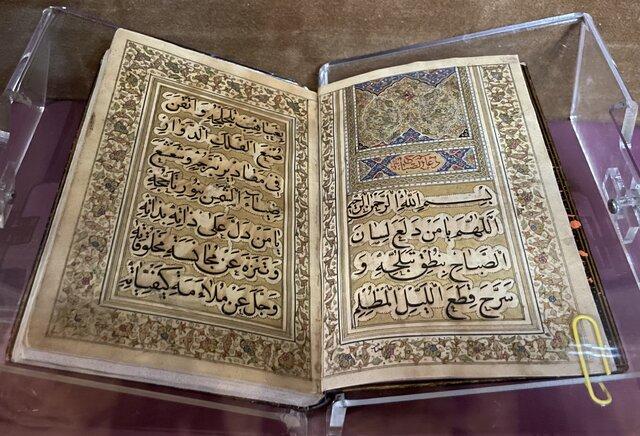 بسم الله الرحمن الرحيم
اللهم يا من دلع لسان
الصباح بنطق تبلجه و
سرح قطع الليل المظلم
بغياهب تلجلجه واتقن
صنع الفلك الدوار
في مقادير تبرجه وشعشع
ضياء الشمس بنور تأججه
يا من دل على ذاته بذاته
وتنزه عن مجانسة مخلوقاته
وجل عن ملاءمة كيفياته